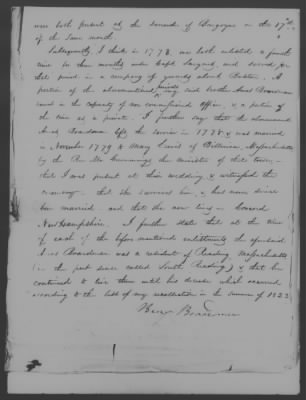 were both present at the surrender of Burgoyne on the 17th
of the same month
Subsequently I think in 1778, we both enlisted a fourth
time for three months under Capt. Sargent, and served for
that period in a company of guards about Boston. A
portion of the aforementioned service said brother Amos Boardman
served in the capacity of non commissioned officer, & a portion of
the time as a private. I further say that the aforesaid
Amos Boardman left the service in 1778 & was married
in November 1779 to Mary Lewis of Billerica, Massachusetts
by the Rev Mr Cummings the minister of that town—
that I was present at their wedding, & witnessed the
ceremony. that she survives him, & has never since
been married and that she now lives in
New Hampshire. I further state that at the time
of each of the before mentioned enlistments the aforesaid
Amos Boardman was a resident of Reading, Massachusetts
(in the part since called South Reading) & that he
continued to live there until his decease which occurred
according to the best of my recollection in the summer of 1822
Benj Boardman